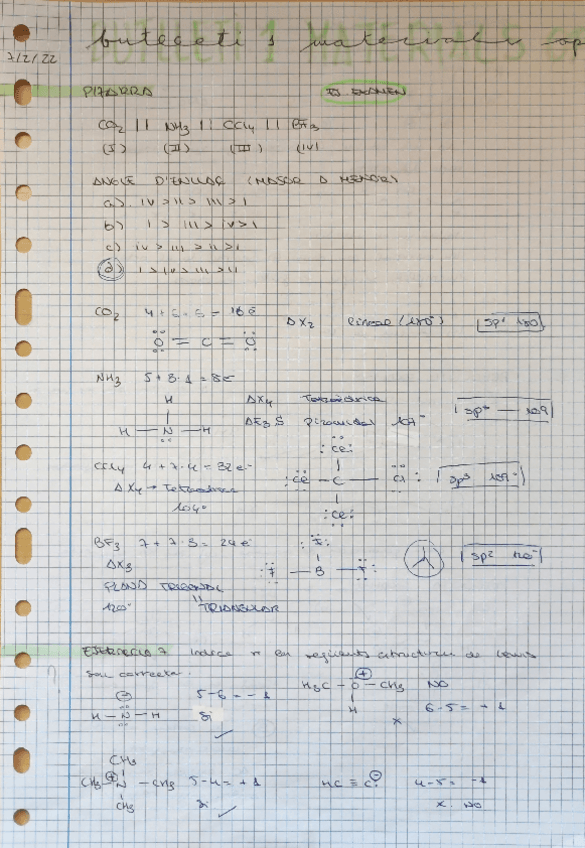 butlletí 1 materials
7/2/22
PIZARRA
EJ. EXAMEN
CO2 || NH3 || CCl4 || BF3
(I) (II) (III) (IV)
ANGLE D'ENLLAÇ (MAJOR A MENOR)
a) IV > II > III > I
b) I > III > IV > I
c) IV > III > II > I
d) I > IV > III > II
CO2 4 + 6 · 2 = 16 e
ΔX2 lineal (180°) sp' 180
O = C = O
NH3 5 + 3 · 1 = 8e
H
H — N — H
ΔX4 Tetraédrica
ΔE3S piramidal 107°
sp³ — 109
CCl4 4 + 7 · 4 = 32 e
ΔX4 → Tetraédrica
109°
Cl
Cl — C — Cl
Cl
sp³ 109°
BF3 7 + 7 · 3 = 24 e
ΔX3
PLANO TRIGONAL
120° "TRIANGULAR
F
F — B — F
sp² 120°
EJERCICIO 7 Indica si en següents estructures de Lewis
son correctes.
H — N — H
5 - 6 = -1
Si
H3C — O — CH3 NO
H
6 - 5 = +1
x
CH3
CH3 — N — CH3
CH3
5 - 4 = +1
Si
HC ≡ C
4 - 5 = -1
x NO